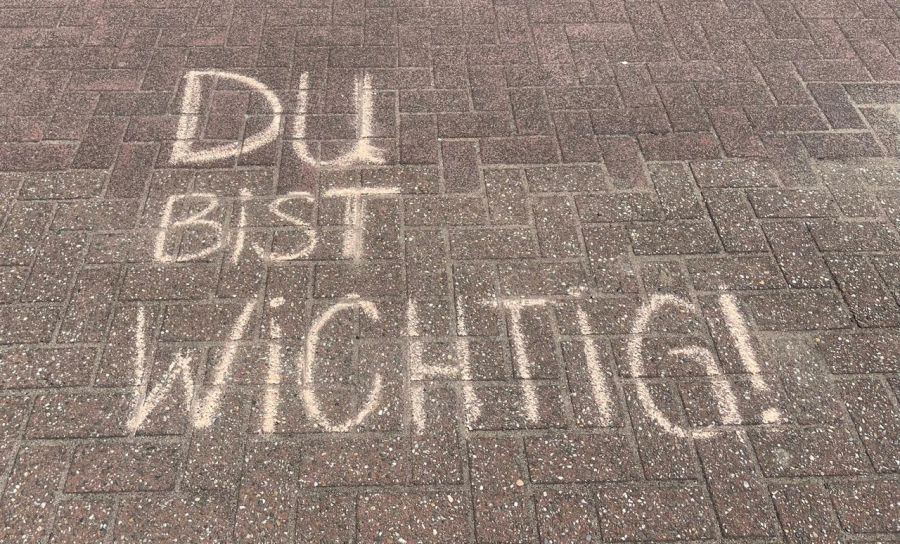 DU
BiST
WiCHTiG!